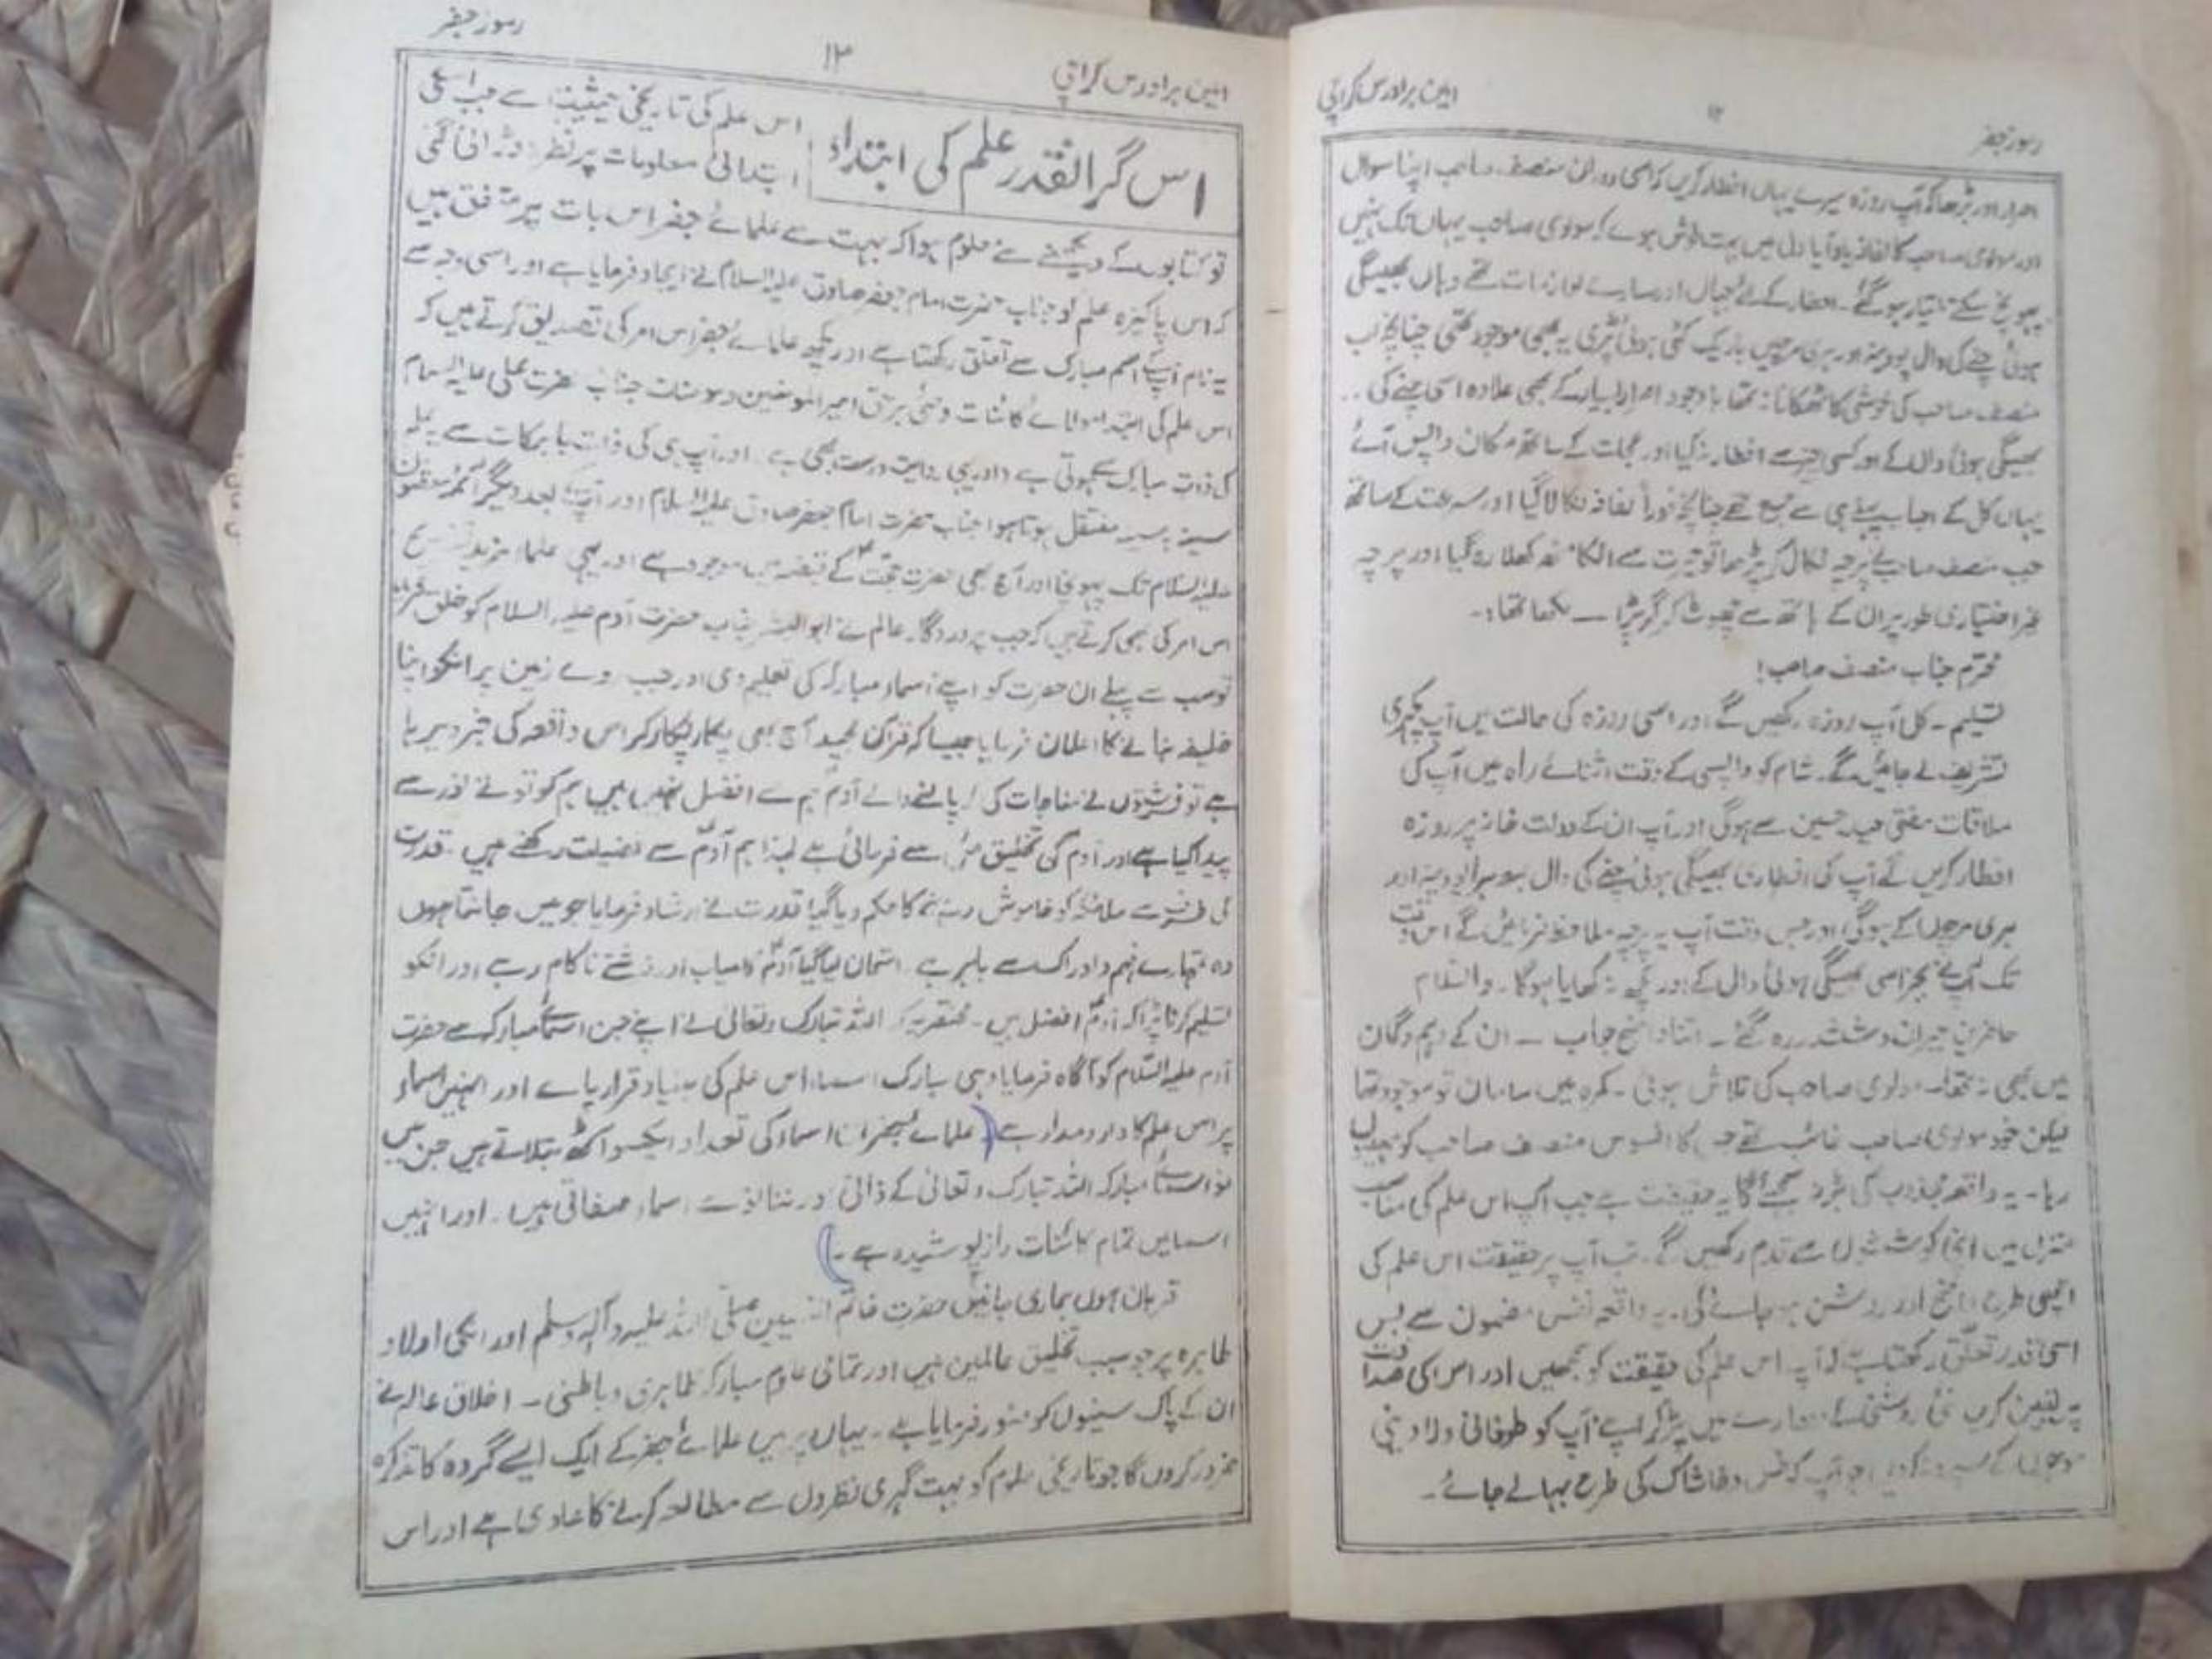 رموز جفر
۱۲
امین برادرس کراچی
اصرار اور بڑھا کہ آپ روزہ میرے یہاں افطار کریں کہ اسی دوران منصف صاحب اپنا سوال
اور مولوی صاحب کا لفافہ یاد آیا دل میں بہت خوش ہوے کہ مولوی صاحب یہاں تک نہیں
پہونچ سکے تیار ہو گئے۔ افطار کے لئے جہاں اور سارے لوازمات تھے وہاں بھیگی
ہوئی چنے کی دال پودینہ اور ہری مرچیں باریک کٹی ہوئی پڑی یہ بھی موجود تھی چنانچہ اب
منصف صاحب کی خوشی کا ٹھکانا نہ تھا باوجود اصرار بسیار کے بھی علاوہ اسی چنے کی ..
بھیگی ہوئی دال کے اور کسی چیز سے افطار نہ کیا اور عجلت کے ساتھ مکان واپس آئے
یہاں کل کے احباب پہلے ہی سے جمع تھے چنانچہ فوراً لفافہ نکالا گیا اور سرعت کے ساتھ
جب منصف صاحب نے پرچہ نکال کر پڑھا تو حیرت سے انکا منھ کھلا رہ گیا اور پرچہ
غیر اختیاری طور پر ان کے ہاتھ سے چھوٹ کر گر پڑا ــ لکھا تھا :۔
محترم جناب منصف صاحب!
تسلیم ۔ کل آپ روزہ رکھیں گے اور اسی روزہ کی حالت میں آپ کچہری
تشریف لے جائیں گے۔ شام کو واپسی کے وقت اثنائے راہ میں آپ کی
ملاقات مفتی حیدر حسین سے ہوگی اور آپ ان کے دولت خانہ پر روزہ
افطار کریں گے آپ کی افطاری بھیگی ہوئی چنے کی دال پودینہ اور
ہری مرچوں کے ہوگی اور جس وقت آپ یہ پرچہ ملاحظہ فرمائیں گے اس وقت
تک آپ نے بجز اسی بھیگی ہوئی دال کے اور کچھ نہ کھایا ہوگا۔ والسلام
حاضرین حیران و ششدر رہ گئے ۔ اتنا واضح جواب ــ ان کے وہم و گمان
میں بھی نہ تھا۔ مولوی صاحب کی تلاش ہوئی ۔ کمرہ میں سامان تو موجود تھا
لیکن خود مولوی صاحب غائب تھے جس کا افسوس منصف صاحب کو
رہا۔ یہ واقعہ مجذوب کی بڑ نہ سمجھئے گا یہ حقیقت ہے جب آپ اس علم کی
منزل میں اپنی کوششوں سے قدم رکھیں گے۔ تب آپ پر حقیقت اس علم کی
اچھی طرح واضح اور روشن ہو جائے گی۔ یہ واقعہ نفس مضمون سے بس
اسی قدر تعلق رکھتا ہے کہ آپ اس علم کی حقیقت کو سمجھیں اور اس کی صداقت
پہ یقین کریں نئی روشنی کے میں پڑ کر اپنے آپ کو طوفانی
موجوں کے سپرد نہ کریں جو آپ کو خس و خاشاک کی طرح بہا لے جائے۔
امین برادرس کراچی
۱۳
رموز جفر
اس گرانقدر علم کی ابتداء
اس علم کی تاریخی حیثیت سے جب اسکی
ابتدائی معلومات پر نظر دوڑائی گئی
تو کتابوں کے دیکھنے سے معلوم ہوا کہ بہت سے علمائے جفر اس بات پر متفق ہیں
کہ اس پاکیزہ علم کو جناب حضرت امام جعفر صادق علیہ السلام نے ایجاد فرمایا ہے اور اسی وجہ سے
یہ نام آپکے اسم مبارک سے تعلق رکھتا ہے اور کچھ علمائے جفر اس امر کی تصدیق کرتے ہیں کہ
اس علم کی ابتدا مولائے کائنات وصیٔ برحق امیر المومنین و مومنات جناب حضرت علی علیہ السلام
کی ذات مبارک سے ہوتی ہے اور یہی روایت درست بھی ہے اور آپ ہی کی ذات بابرکات سے یہ علم
سینہ بہ سینہ منتقل ہوتا ہوا جناب حضرت امام جعفر صادق علیہ السلام اور آپکے بعد دیگر ائمہ معصومین
علیہ السلام تک پہونچا اور آج بھی حضرت حجت کے قبضہ میں موجود ہے اور یہی علماء مزید تشریح
اس امر کی بھی کرتے ہیں کہ جب پروردگار عالم نے ابو البشر جناب حضرت آدم علیہ السلام کو خلق فرمایا
تو سب سے پہلے ان حضرت کو اپنے اسماء مبارکہ کی تعلیم دی اور جب روے زمین پر انکو اپنا
خلیفہ بنانے کا اعلان فرمایا جیسا کہ قرآن مجید آج بھی پکار پکار کر اس واقعہ کی خبر دیرہا
ہے تو فرشتوں نے مناجات کی کہ پالنے والے آدم ہم سے افضل نہیں ہیں ہم کو تو نے نور سے
پیدا کیا ہے اور آدم کی تخلیق مٹی سے فرمائی ہے لہذا ہم آدم سے فضیلت رکھتے ہیں ۔ قدرت
کی طرف سے ملائکہ کو خاموش رہنے کا حکم دیا گیا قدرت نے ارشاد فرمایا جو میں جانتا ہوں
وہ تمہارے فہم و ادراک سے باہر ہے۔ امتحان لیا گیا آدم کامیاب اور فرشتے ناکام رہے اور انکو
تسلیم کرنا پڑا کہ آدم افضل ہیں ۔ مختصر یہ کہ اللہ تبارک و تعالیٰ نے اپنے جن اسمائے مبارک سے حضرت
آدم علیہ السلام کو آگاہ فرمایا وہی مبارک اسماء اس علم کی بنیاد قرار پاے اور انہیں اسماء
پر اس علم کا دارومدار ہے (علمائے جفر ان اسماء کی تعداد ایکسو آٹھ بتلاتے ہیں جن میں
نو اسمائے مبارکہ اللہ تبارک و تعالیٰ کے ذاتی اور ننانوے اسماء صفاتی ہیں۔ اور انہیں
اسما میں تمام کائنات راز پوشیدہ ہے ۔)
قربان ہوں ہماری جانیں حضرت خاتم النبیین صلی اللہ علیہ وآلہ وسلم اور انکی اولاد
طاہرہ پر جو سبب تخلیق عالمین ہیں اور تمامی علوم مبارکہ ظاہری و باطنی ۔ اخلاق عالم نے
ان کے پاک سینوں کو منور فرمایا ہے ۔ یہاں پر میں علمائے جفر کے ایک ایسے گروہ کا تذکرہ
ضرور کروں گا جو تاریخی علوم کو بہت گہری نظروں سے مطالعہ کرنے کا عادی ہے اور اس